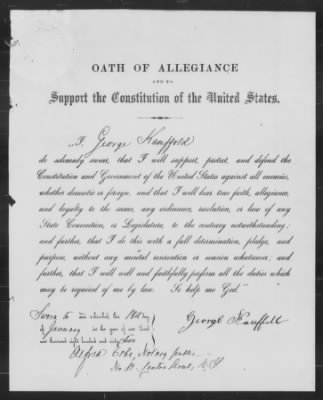 OATH OF ALLEGIANCE
AND TO
Support the Constitution of the United States.
"I, George Kauffold
do solemnly swear, that I will support, protect, and defend the
Constitution and Government of the United States against all enemies,
whether domestic or foreign, and that I will bear true faith, allegiance,
and loyalty to the same, any ordinance, resolution, or law of any
State Convention, or Legislature, to the contrary notwithstanding;
and further, that I do this with a full determination, pledge, and
purpose, without any mental reservation or evasion whatsoever; and
further, that I will well and faithfully perform all the duties which
may be required of me by law. So help me God."
Sworn to and subscribed, this day
of January in the year of our Lord
one thousand eight hundred and sixty
George Kauffold
Alfred Notary Public
No. Centre Street, N.Y.